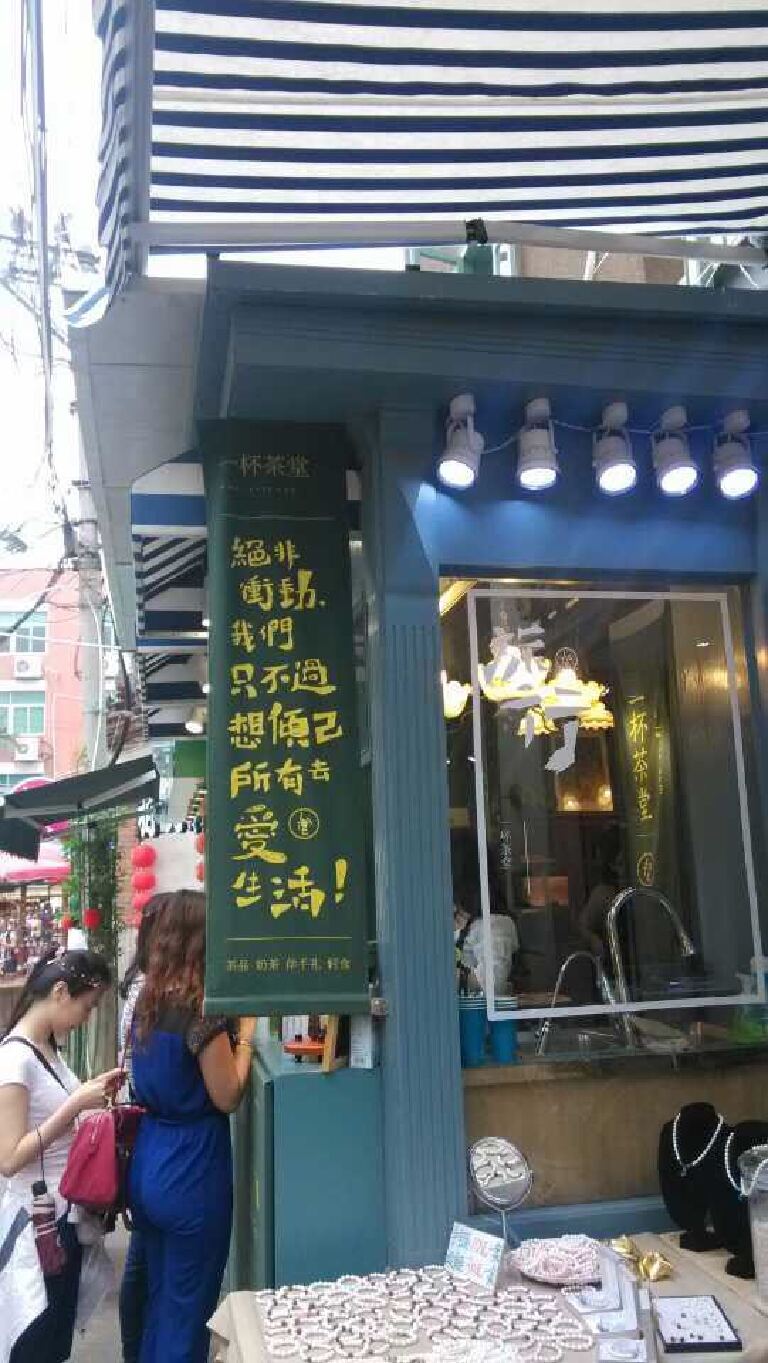 一杯茶堂
絕非
衝動,
我們
只不過
想傾己
所有去
愛
生活!
茶品 奶茶 伴手礼 轻食
旅行
一杯茶堂
一杯茶堂